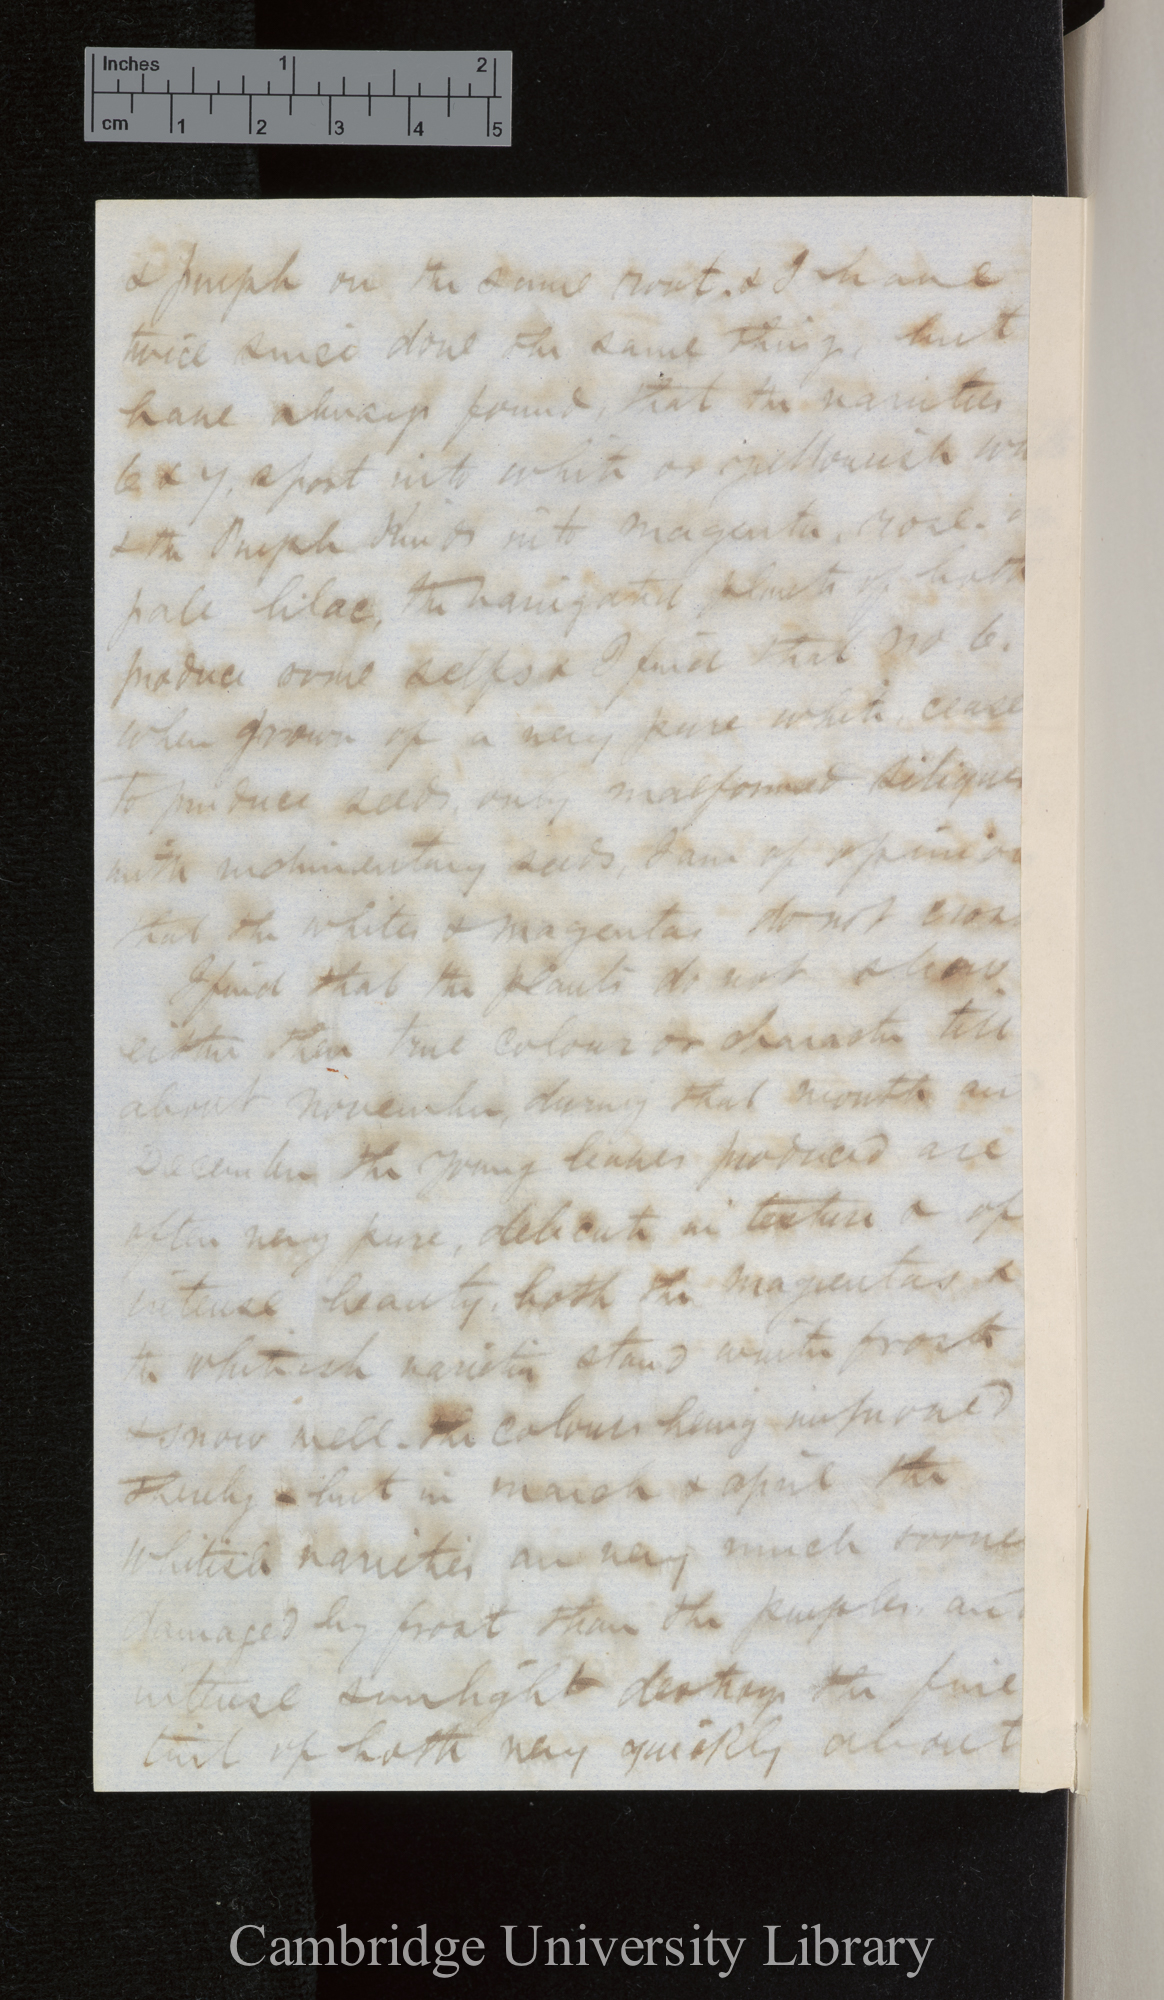 Inches 1 2
cm 1 2 3 4 5
& purple on the same root. & I have
twice since done the same thing, but
have always found, that the varieties
6 & 7, sport into white or yellowish wh
& the Purple kinds into magenta, rose.
pale lilac, the variegated plants of both
produce some selfs & I find that no 6.
when grown of a very pure white, cease
to produce seeds, only malformed siliques
with rudimentary seeds, I am of opinion
that the whites & magentas do not cross
I find that the plants do not show
either their true colour or character till
about november, during that month an
December the young leaves produced are
often very pure, delicate in texture & of
intense beauty, both the magentas &
the whitish varieties stand winter frosts
& snow well - the colours being improved
thereby - but in march & april the
whitish varieties are very much sooner
damaged by frost than the purples, and
intense sunlight destroys the fine
tint of both very quickly about
Cambridge University Library